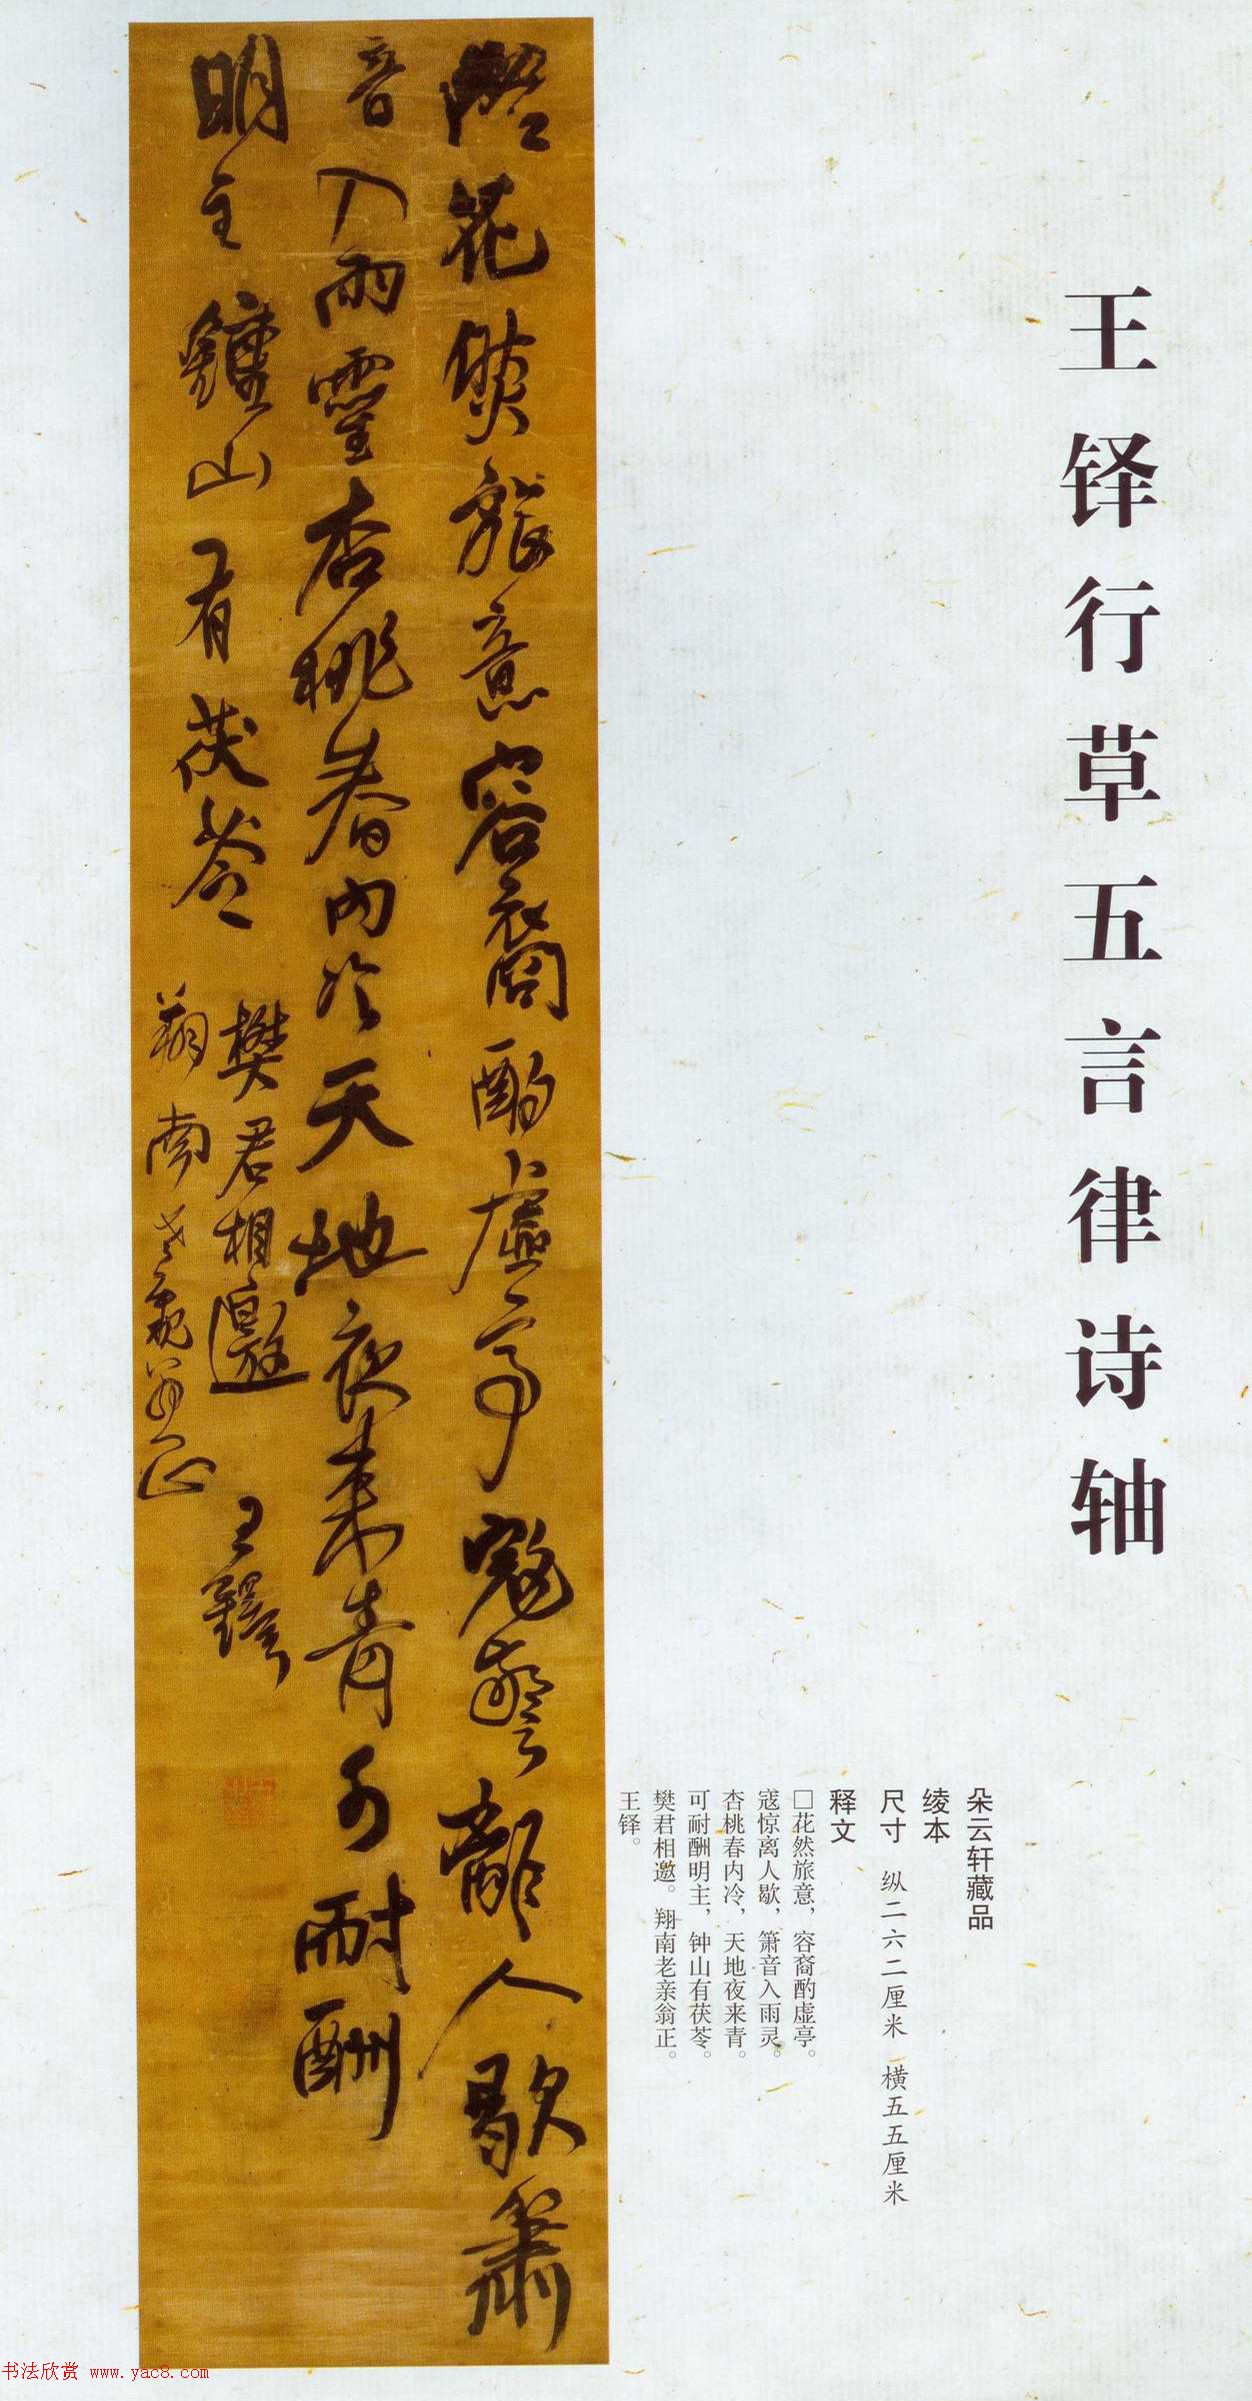 王铎行草五言律诗轴
朵云轩藏品
绫本
尺寸 纵二六二厘米 横五五厘米
释文
□花然旅意，容裔酌虚亭。
寇惊离人歇，箫音入雨灵。
杏桃春内冷，天地夜来青。
可耐酬明主，钟山有茯苓。
樊君相邀。翔南老亲翁正。
王铎。
花然旅意容裔酌虚亭寇驚離人歇簫
音入雨靈杏桃春内冷天地夜来青可耐酬
明主鐘山有茯苓
樊君相邀
翔南老親翁正
王鐸
书法欣赏 www.yac8.com